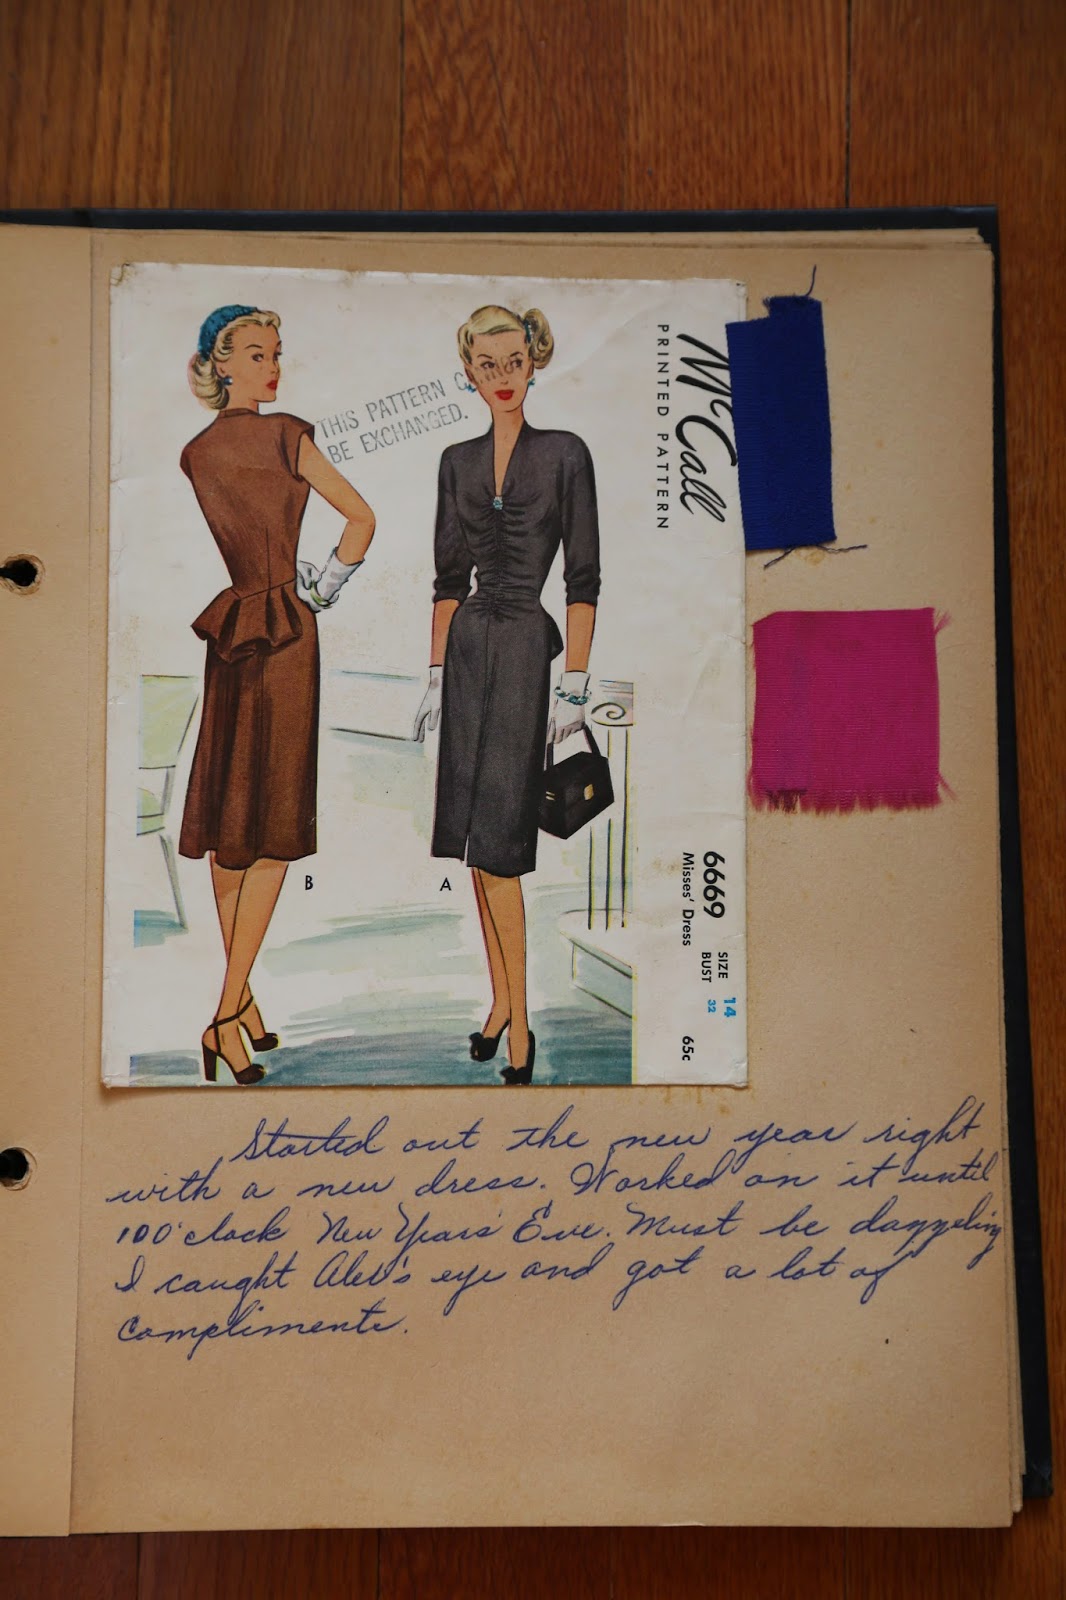 McCall
PRINTED PATTERN
THIS PATTERN CANNOT
BE EXCHANGED.
B
A
6669
Misses' Dress
SIZE 14
BUST 32
65c
Started out the new year right
with a new dress. Worked on it until
10 O'clock New Years Eve. Must be dazzeling
I caught Alex's eye and got a lot of
compliments.